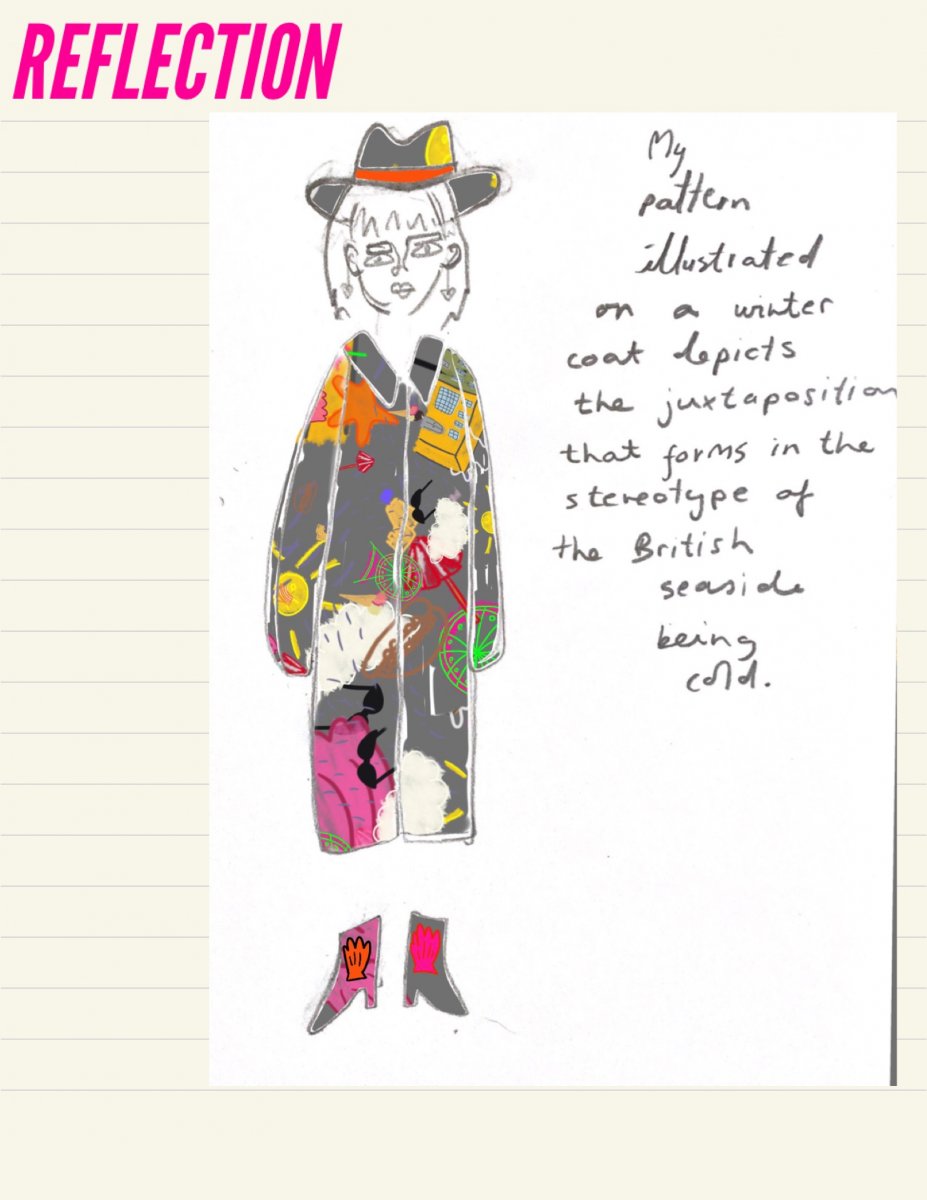 REFLECTION
My
pattern
illustrated
on a winter
coat depicts
the juxtaposition
that forms in the
stereotype of
the British
seaside
being
cold.